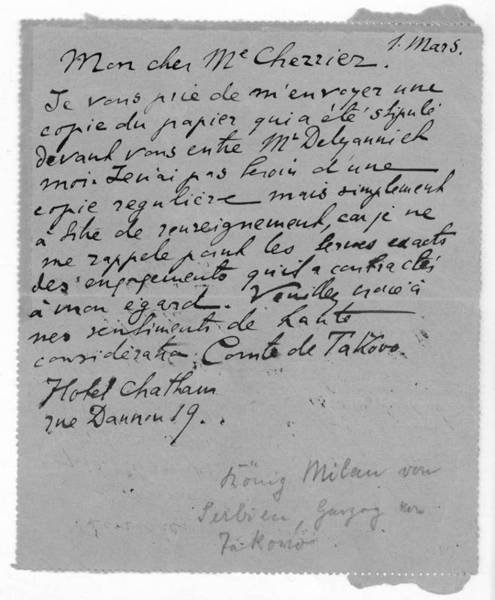 1. Mars.
Mon cher Me Cherrier.
Je vous prie de m'envoyer une
copie du papier qui a été stipulé
devant vous entre Mr Delyanni et
moi. Je n'ai pas besoin d'une
copie regulière mais simplement
à titre de renseignement, car je ne
me rappele point les termes exacts
des engagements qu'il a contractés
à mon egard. Veuillez croire à
mes sentiments de haute
considération. Comte de Takovo.
Hotel Chatham
rue Daunou 19.
König Milan von
Serbien,
Takovo